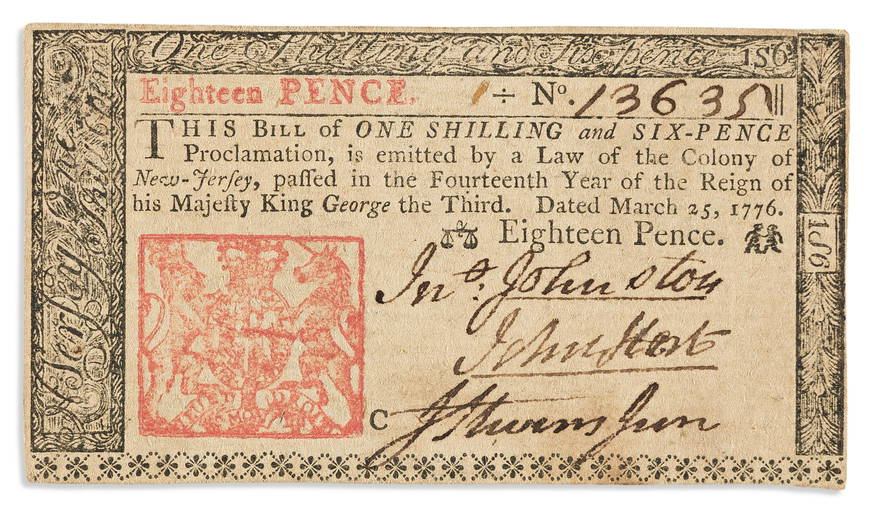 One Shilling and Six-pence 1s6
Eighteen PENCE. 1÷ No. 13635
THIS BILL of ONE SHILLING and SIX-PENCE
Proclamation, is emitted by a Law of the Colony of
New-Jerſey, paſſed in the Fourteenth Year of the Reign of
his Majeſty King George the Third. Dated March 25, 1776.
Eighteen Pence.
1ſ6
Jno. Johnston
John Hart
C J Stevens Jun